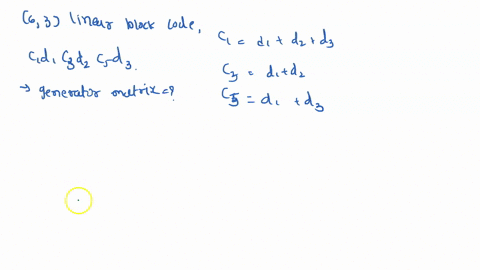 (6,3) linear block code,
c₁d₁ c₃d₂ c₅ d₃.
→ generator matrix = ?
c₁ = d₁ + d₂ + d₃
c₃ = d₁ + d₂
c₅ = d₁ + d₃